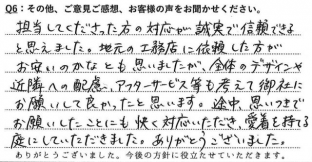 Q6：その他、ご意見ご感想、お客様の声をお聞かせください。
担当してくださった方の対応が誠実で信頼できる
と思えました。地元の工務店に依頼した方が
お安いのかなとも思いましたが、全体のデザインや
近隣への配慮、アフターサービス等も考えて御社に
お願いして良かったと思います。途中、思いつきで
お願いしたことにも快く対応いただき、愛着を持てる
庭にしていただきました。ありがとうございました。
ありがとうございました。今後の方針に役立たせていただきます。